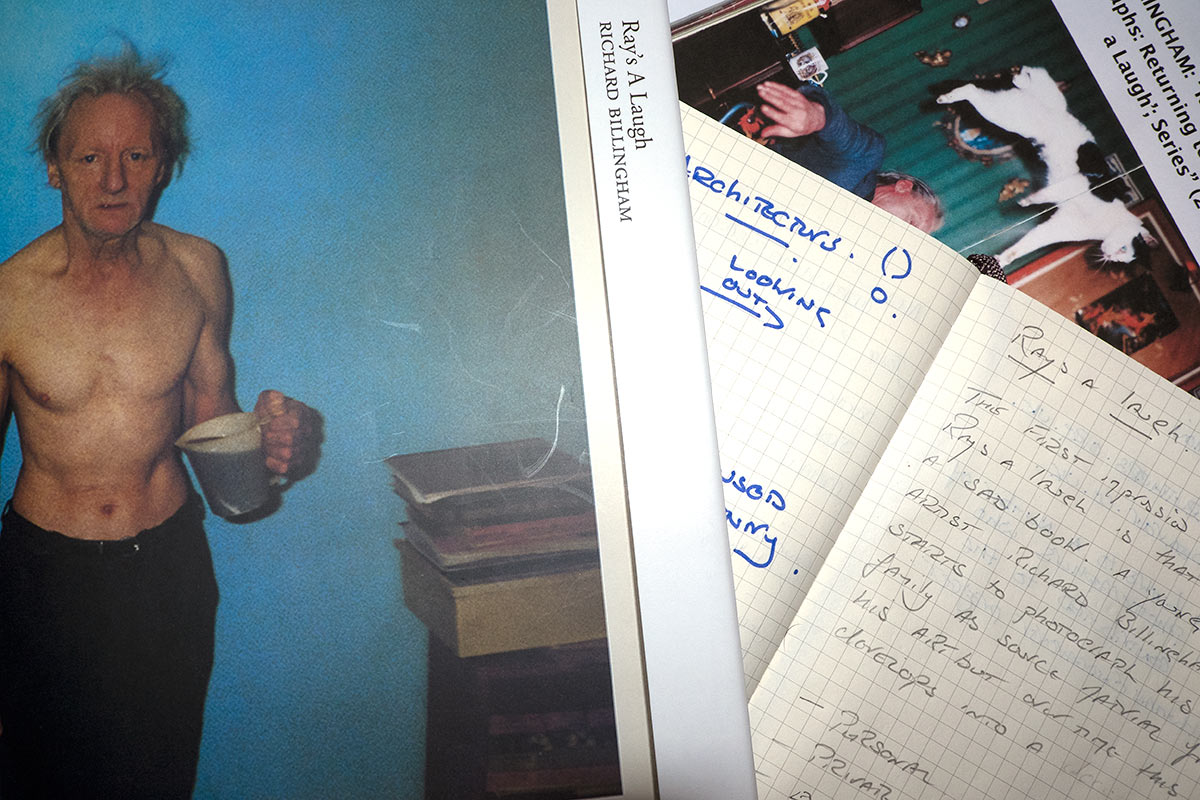 Ray's A Laugh
RICHARD BILLINGHAM
INGHAM:
phs: Returning to
a Laugh'; Series"
ARCHITECTURS. ()
LOOKING O.
OUT
USED
NNY.
Ray's a laugh.
THE FIRST
Ray's a laugh is that
A SAD BOOK. A YOUNG
ARTIST. RICHARD Billingha
STARTS TO photograph his
family AS SOURCE
his ART but OVER TIME this
DEVELOPS INTO A
- PERSONAL
- PRIVATE